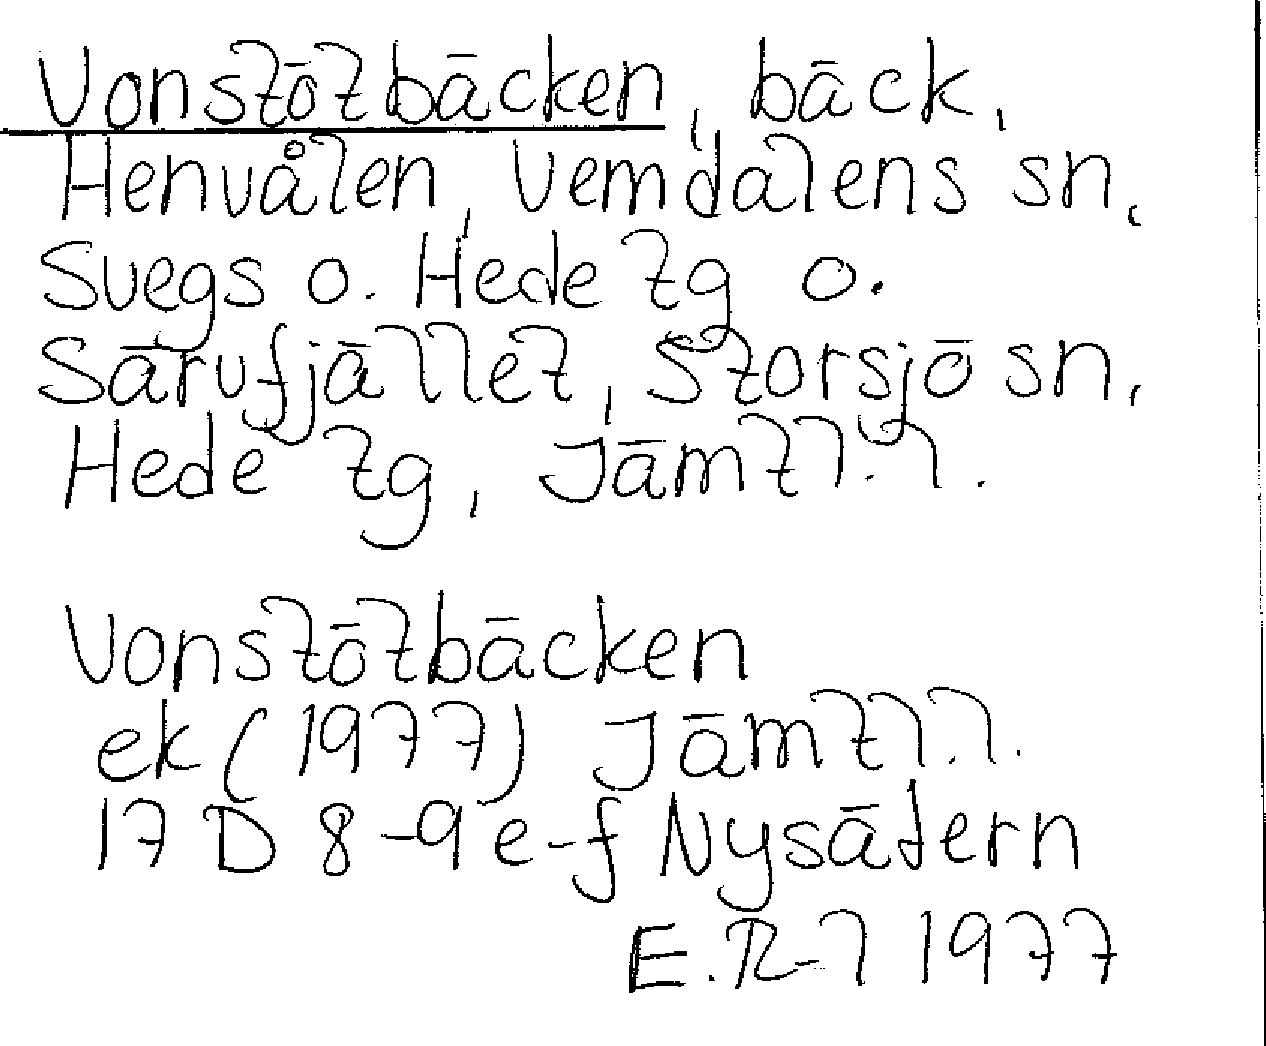 Vonstötbäcken, bäck,
Henvålen, Vemdalens sn,
Svegs o. Hede tg o.
Särvfjället, Storsjö sn,
Hede tg, Jämtl. l.
Vonstötbäcken
ek (1977) Jämtl. l.
17 D 8-9 e-f Nysätern
E. R-l 1977